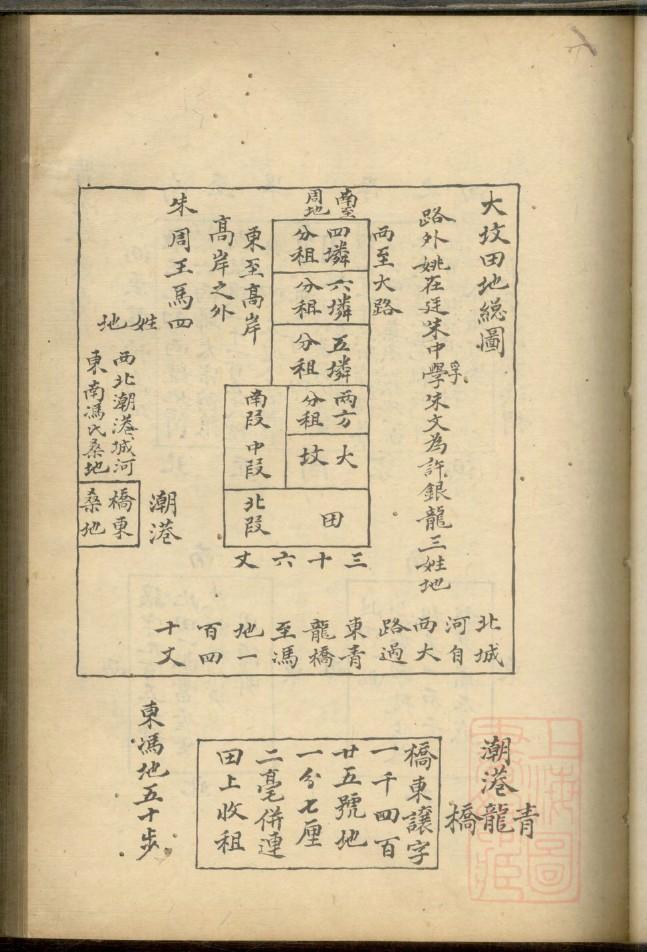 大坟田地總圖
路外姚在廷朱中學孚朱文為許銀龍三姓地
西至大路
南至
周地
四璘
分租
六璘
分租
五璘
分租
兩方
分租
大坟
田
南段
中段
北段
三十六丈
東至高岸
高岸之外
朱周王馬四
姓地
西北潮港城河
東南馮氏桑地
潮港
橋東
桑地
北城
河自
西大
路過
東青
龍橋
至馮
地一
百四
十丈
潮港
青龍橋
橋東讓字
一千四百
廿五號地
一分七厘
二毫併連
田上收租
東馮地五十步
上海圖